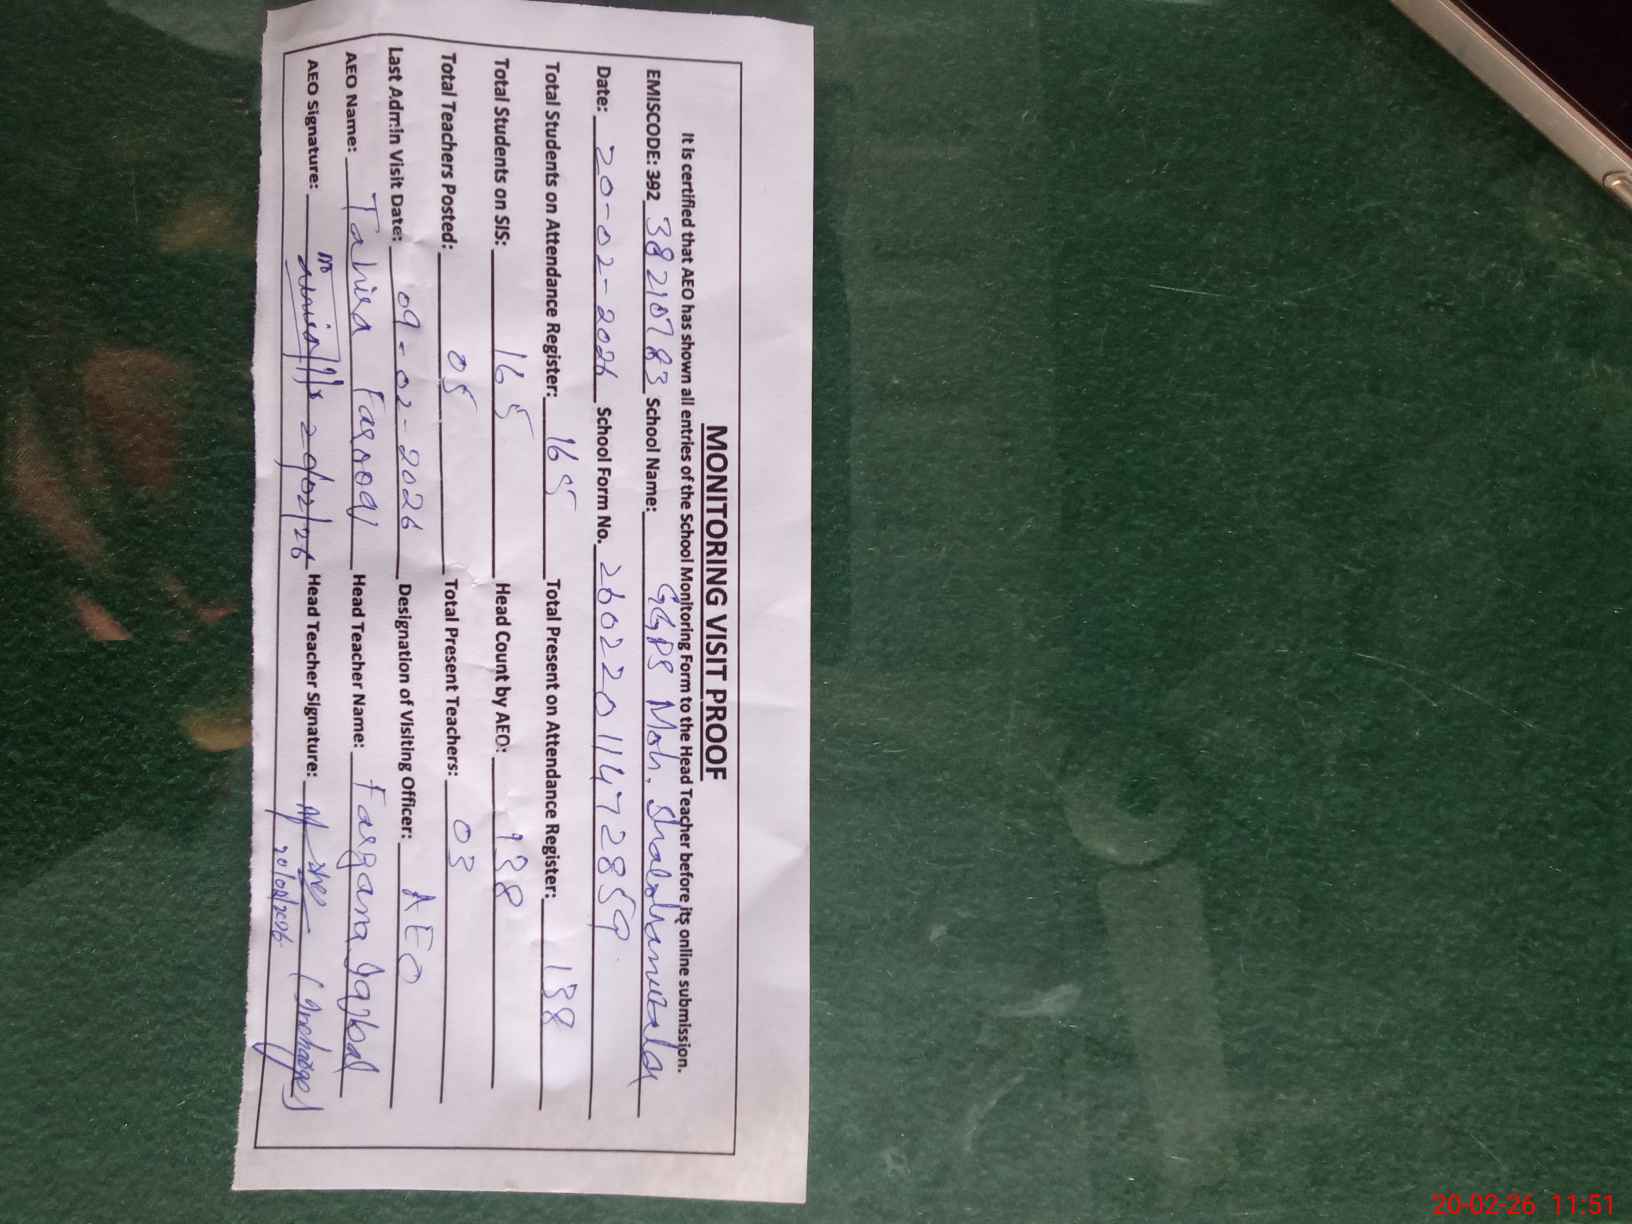 MONITORING VISIT PROOF
It is certified that AEO has shown all entries of the School Monitoring Form to the Head Teacher before its online submission.
EMISCODE: 392 38210783 School Name: GGPS Moh.
Date: 20-02-2026 School Form No. 26022011472859
Total Students on Attendance Register: 165 Total Present on Attendance Register: 138
Total Students on SIS: 165 Head Count by AEO: 138
Total Teachers Posted: 05 Total Present Teachers: 03
Last Admin Visit Date: 09-02-2026 Designation of Visiting Officer: AEO
AEO Name: Tahira Farooq Head Teacher Name: Fargana Iqbal
AEO Signature: 20/02/26 Head Teacher Signature:
20/02/2026
20-02-26 11:51